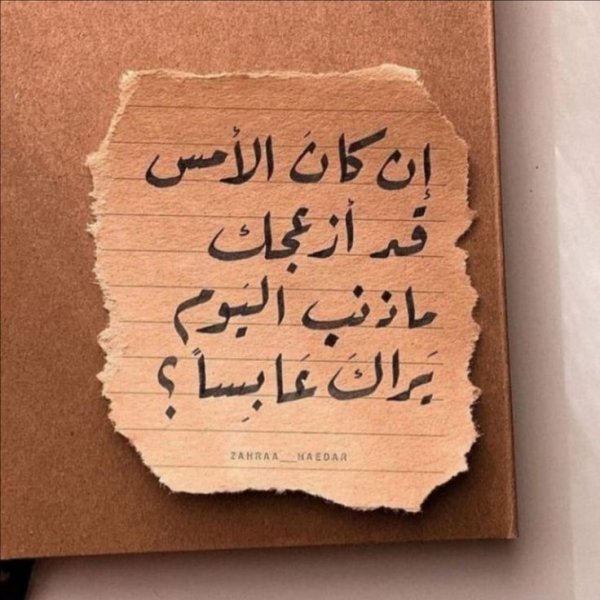 إن كانَ الأمس
قد أزعجك
ماذنب اليَوم
يَراكَ عَابِساً ؟
ZAHRAA__HAEDAR